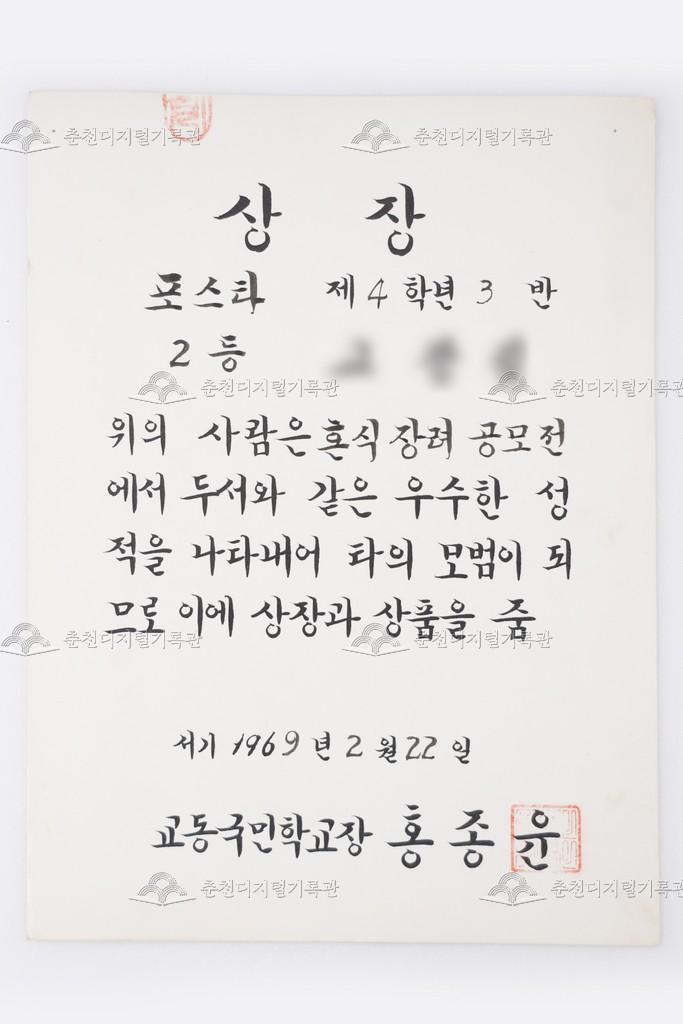 상 장
포스타 제 4 학년 3 반
2 등
위의 사람은 혼식 장려 공모전
에서 두서와 같은 우수한 성
적을 나타내어 타의 모범이 되
므로 이에 상장과 상품을 줌
서기 1969 년 2 월 22 일
교동국민학교장 홍 종 윤
춘천디지털기록관
춘천디지털기록관
춘천디지털기록관
춘천디지털기록관
춘천디지털기록관
춘천디지털기록관
춘천디지털기록관
춘천디지털기록관